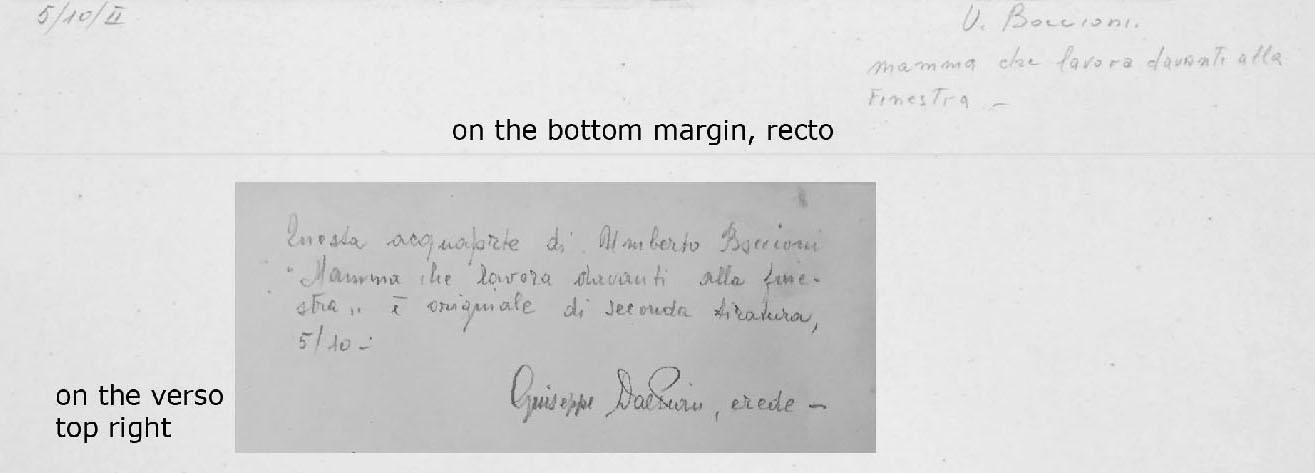 5/10/II
U. Boccioni.
mamma che lavora davanti alla
Finestra –
on the bottom margin, recto
Questa acquaforte di Umberto Boccioni
"Mamma che lavora davanti alla fine-
stra„ è originale di seconda tiratura,
5/10 –
Giuseppe , erede –
on the verso
top right